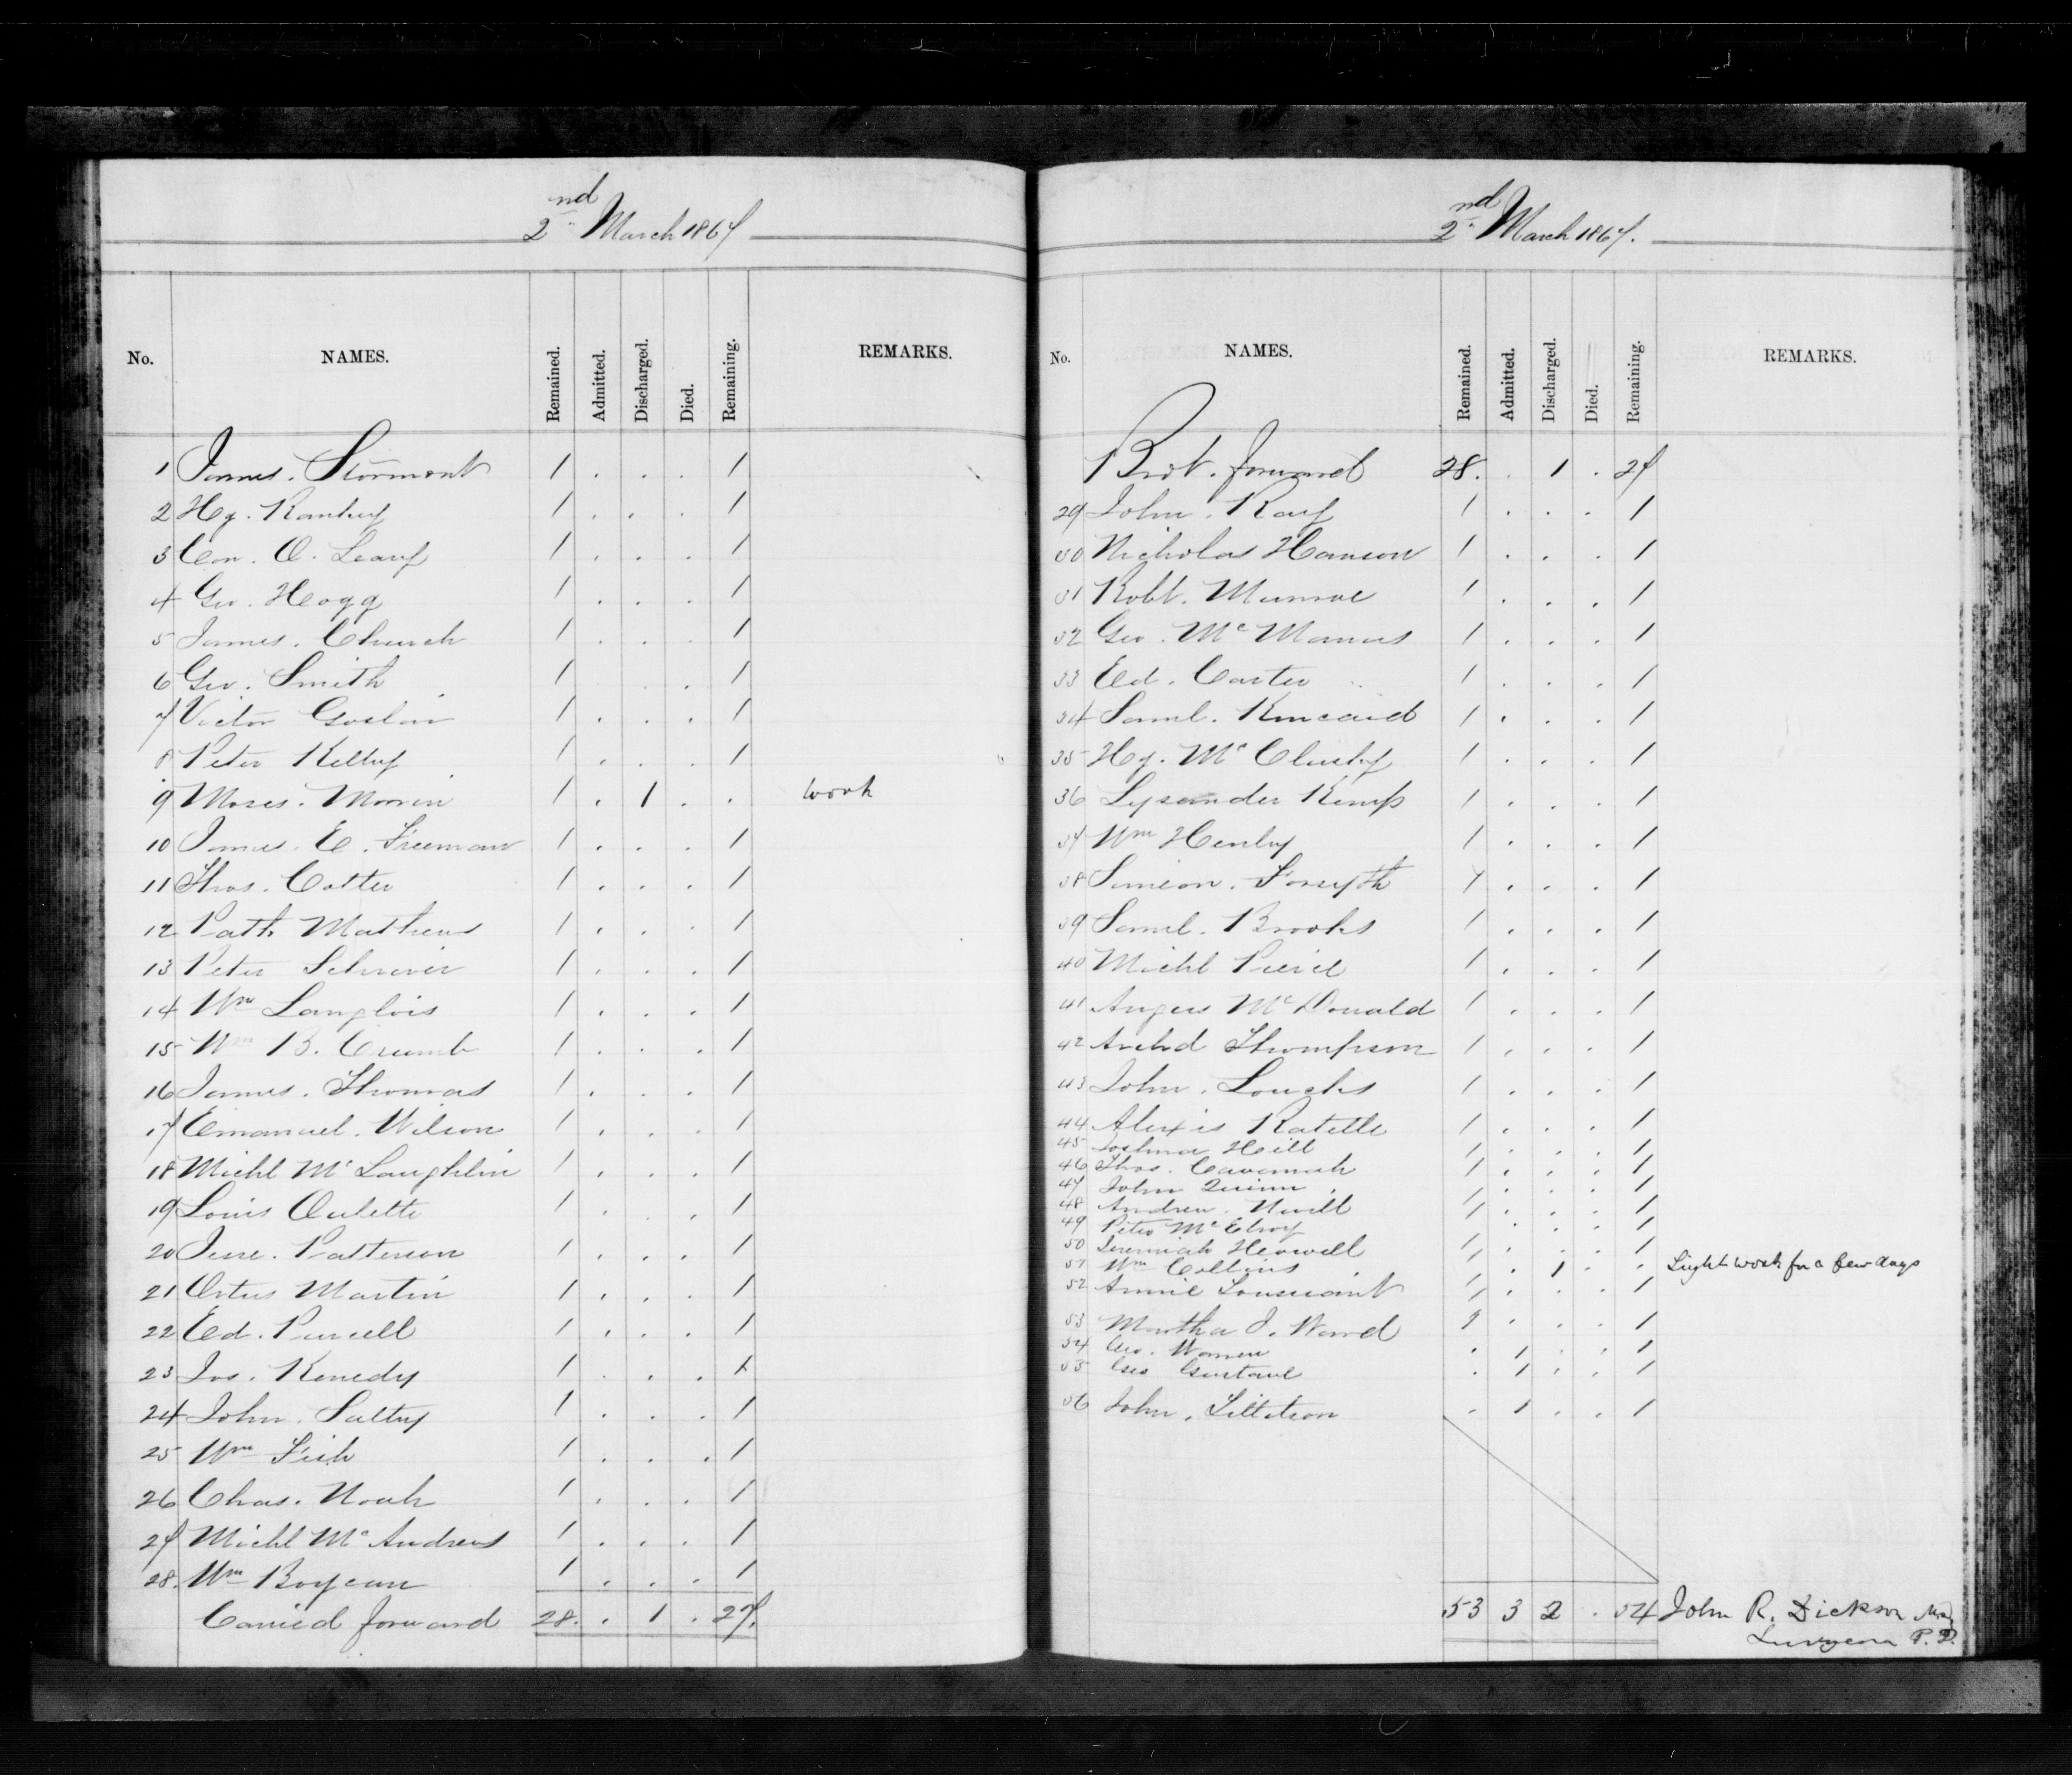 2nd March 1867
No. NAMES. Remained. Admitted. Discharged. Died. Remaining. REMARKS.
1 James. Stormont 1 . . . 1
2 Hy. Rantuy 1 . . . 1
3 Con. O. Leary 1 . . . 1
4 Geo. Hogg 1 . . . 1
5 James. Church 1 . . . 1
6 Geo. Smith 1 . . . 1
7 Victor Goslin 1 . . . 1
8 Peter Kelly 1 . . . 1
9 Moses. Morrin 1 . 1 . . work
10 James. E. Freeman 1 . . . 1
11 Thos. Cotter 1 . . . 1
12 Patk Mathews 1 . . . 1
13 Peter Schriver 1 . . . 1
14 Wm Langlois 1 . . . 1
15 Wm B. Crumb 1 . . . 1
16 James. Thomas 1 . . . 1
17 Emanuel. Wilson 1 . . . 1
18 Michl McLaughlin 1 . . . 1
19 Louis Oulette 1 . . . 1
20 Jesse. Patterson 1 . . . 1
21 Ortus Martin 1 . . . 1
22 Ed. Purcell 1 . . . 1
23 Jos. Kenedy 1 . . . 1
24 John. Saltry 1 . . . 1
25 Wm Fish 1 . . . 1
26 Chas. Noah 1 . . . 1
27 Michl McAndrews 1 . . . 1
28. Wm Boyean 1 . . . 1
Carried forward 28. . 1 . 27.
2nd March 1867.
No. NAMES. Remained. Admitted. Discharged. Died. Remaining. REMARKS.
Brot. forward 28. . 1 . 27
29 John. Ray 1 . . . 1
30 Nicholas Hanson 1 . . . 1
31 Robt. Munroe 1 . . . 1
32 Geo. McManus 1 . . . 1
33 Ed. Carter 1 . . . 1
34 Saml. Kincaid 1 . . . 1
35 Hy. McClusky 1 . . . 1
36 Lysander Kemp 1 . . . 1
37 Wm Henley 1 . . . 1
38 Simeon. Forsyth 1 . . . 1
39 Saml. Brooks 1 . . . 1
40 Michl Pierce 1 . . . 1
41 Angus McDonald 1 . . . 1
42 Archd Thompson 1 . . . 1
43 John. Loucks 1 . . . 1
44 Alexis Ratelle 1 . . . 1
45 Joshua Hill 1 . . . 1
46 Thos. Cavanah 1 . . . 1
47 John Quinn 1 . . . 1
48 Andrew. Nevill 1 . . . 1
49 Peter McElroy 1 . . . 1
50 Jeremiah Howell 1 . . . 1
51 Wm Collins 1 . 1 . . Light work for a few days
52 Annie Toussaint 1 . . . 1
53 Martha J. Ward 1 . . . 1
54 Geo. Warren . 1 . . 1
55 Geo Gustave . 1 . . 1
56 John. Tillotson . 1 . . 1
53 3 2 . 54 John R. Dickson M.D.
Surgeon P. P.